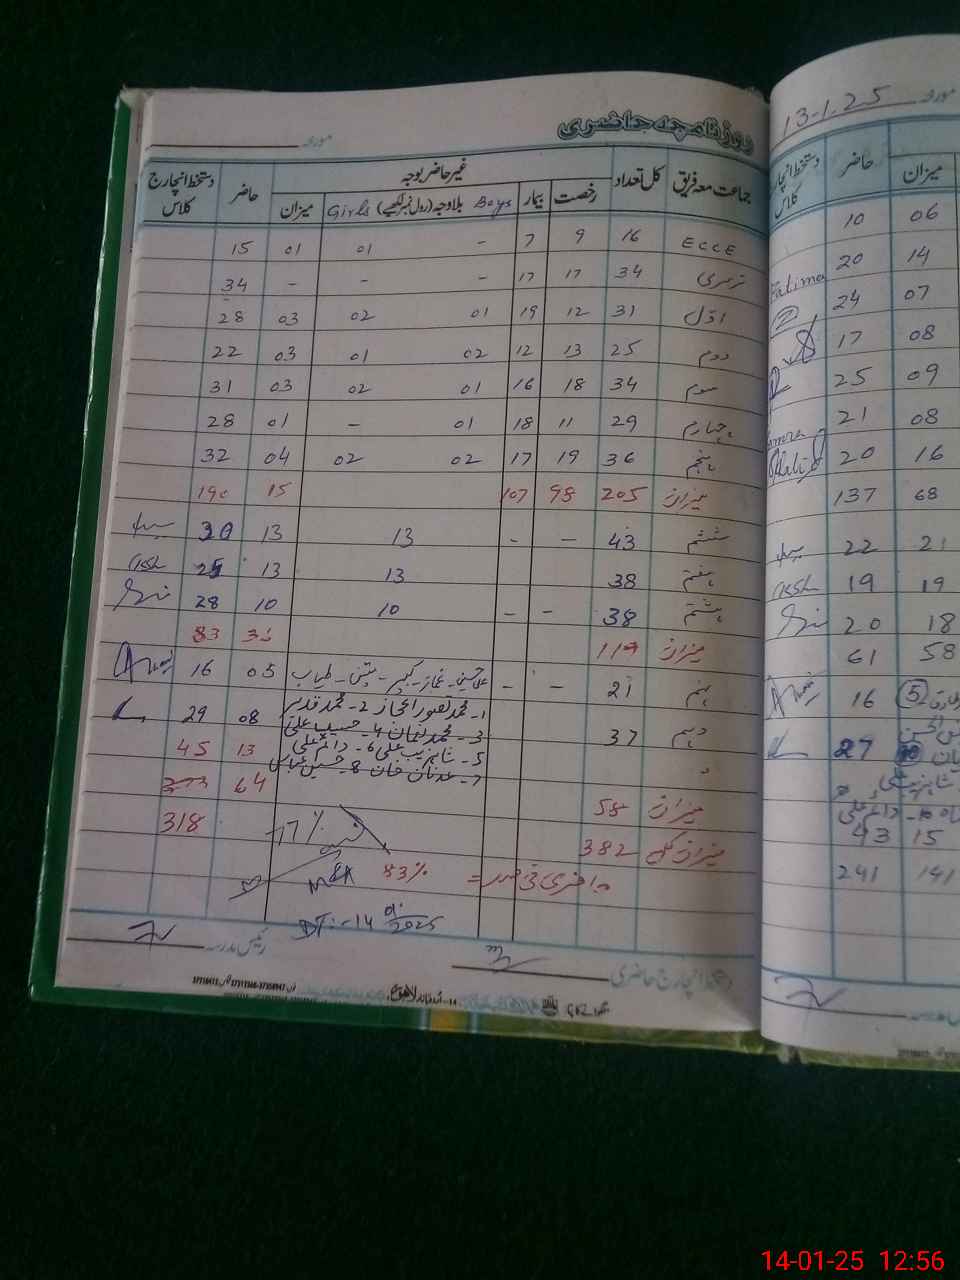 روزنامچہ حاضری
مورخہ
جماعت معہ فریق کل تعداد غیر حاضر بوجہ حاضر دستخط انچارج کلاس
رخصت بیمار Boys بلاوجہ (رول نمبر لکھیے) Girls میزان
ECCE 16 9 7 - 01 01 15
نرسری 34 17 17 - - - 34
اوّل 31 12 19 01 02 03 28
دوم 25 13 12 02 01 03 22
سوم 34 18 16 01 02 03 31
چہارم 29 11 18 01 - 01 28
پنجم 36 19 17 02 02 04 32
میزان 205 98 107 15 190
ششم 43 - - 13 13 30
ہفتم 38 13 13 25
ہشتم 38 - - 10 10 28
میزان 119 83
نہم 21 - - 05 16
دہم 37 08 29
1- محمد تصور اعجاز 2- محمد قدیر
5- شاہزیب علی 6- دائم علی
7- عدنان خان 8- حسنین عباس
13 45
میزان 58 64
میزان کل 382 318
77%
حاضری فی صد = 83%
DT:-14 01 2025
دستخط انچارج حاضری
رئیس مدرسہ
مورخہ 13-1-25
میزان حاضر دستخط انچارج کلاس
06 10
14 20 Fatima
07 24
08 17
09 25
08 21
16 20
68 137
21 22
19 19
18 20
58 61
5 16
27
15 43
141 241
14-01-25 12:56